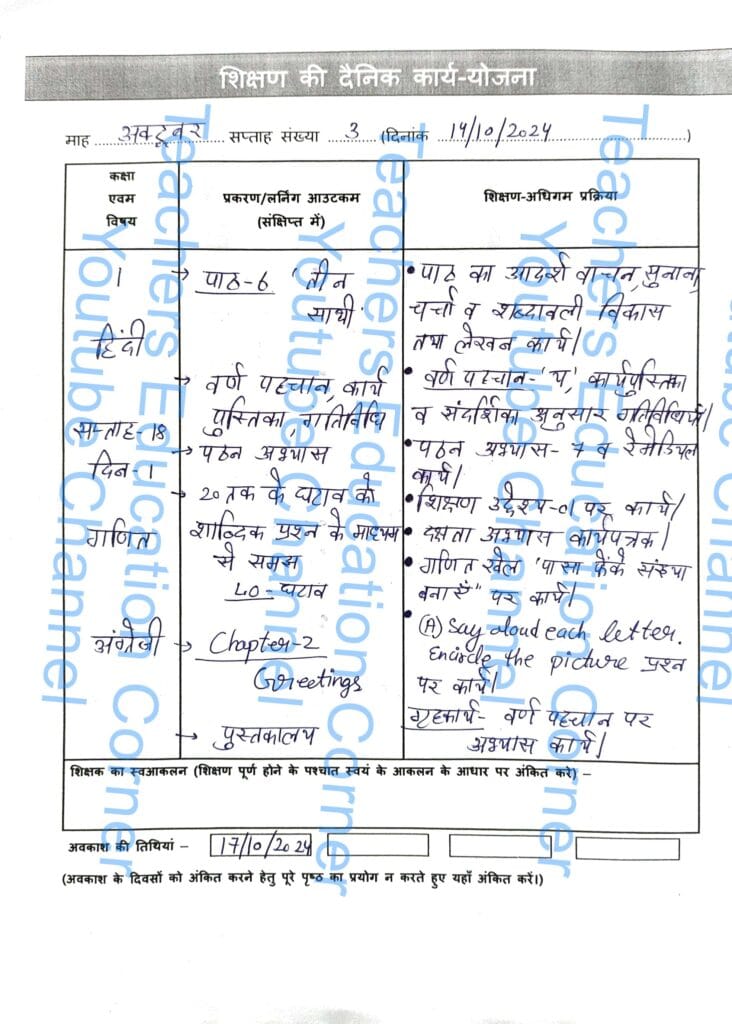 शिक्षण की दैनिक कार्य-योजना
माह अक्टूबर सप्ताह संख्या 3 (दिनांक 14/10/2024)
कक्षा
एवम
विषय
प्रकरण/लर्निग आउटकम
(संक्षिप्त में)
शिक्षण-अधिगम प्रक्रिया
1
हिंदी
सप्ताह-18
दिन-1
गणित
अंग्रेजी
→ पाठ-6 'तीन
साथी'
→ वर्ण पहचान, कार्य
पुस्तिका, गतिविधि
→ पठन अभ्यास
→ 20 तक के घटाव को
शाब्दिक प्रश्न के माध्यम
से समझ
LO- घटाव
→ Chapter-2
Greetings
→ पुस्तकालय
• पाठ का आदर्श वाचन, सुनाना,
चर्चा व शब्दावली विकास
तथा लेखन कार्य।
• वर्ण पहचान-'प', कार्यपुस्तिका
व संदर्शिका अनुसार गतिविधियाँ।
• पठन अभ्यास- 7 व रेमेडियल
कार्य।
• शिक्षण उद्देश्य-01 पर कार्य।
• दक्षता अभ्यास कार्यपत्रक।
• गणित खेल 'पासा फेंके संख्या
बनाएँ" पर कार्य।
• (A) Say aloud each letter.
Encircle the picture प्रश्न
पर कार्य।
गृहकार्य- वर्ण पहचान पर
अभ्यास कार्य।
शिक्षक का स्वआकलन (शिक्षण पूर्ण होने के पश्चात स्वयं के आकलन के आधार पर अंकित करे) –
अवकाश की तिथियां – 17/10/2024
(अवकाश के दिवसों को अंकित करने हेतु पूरे पृष्ठ का प्रयोग न करते हुए यहाँ अंकित करें।)
Teachers Education Corner
Youtube Channel
Teachers Education Corner
Youtube Channel
Teachers Education Corner
Youtube Channel